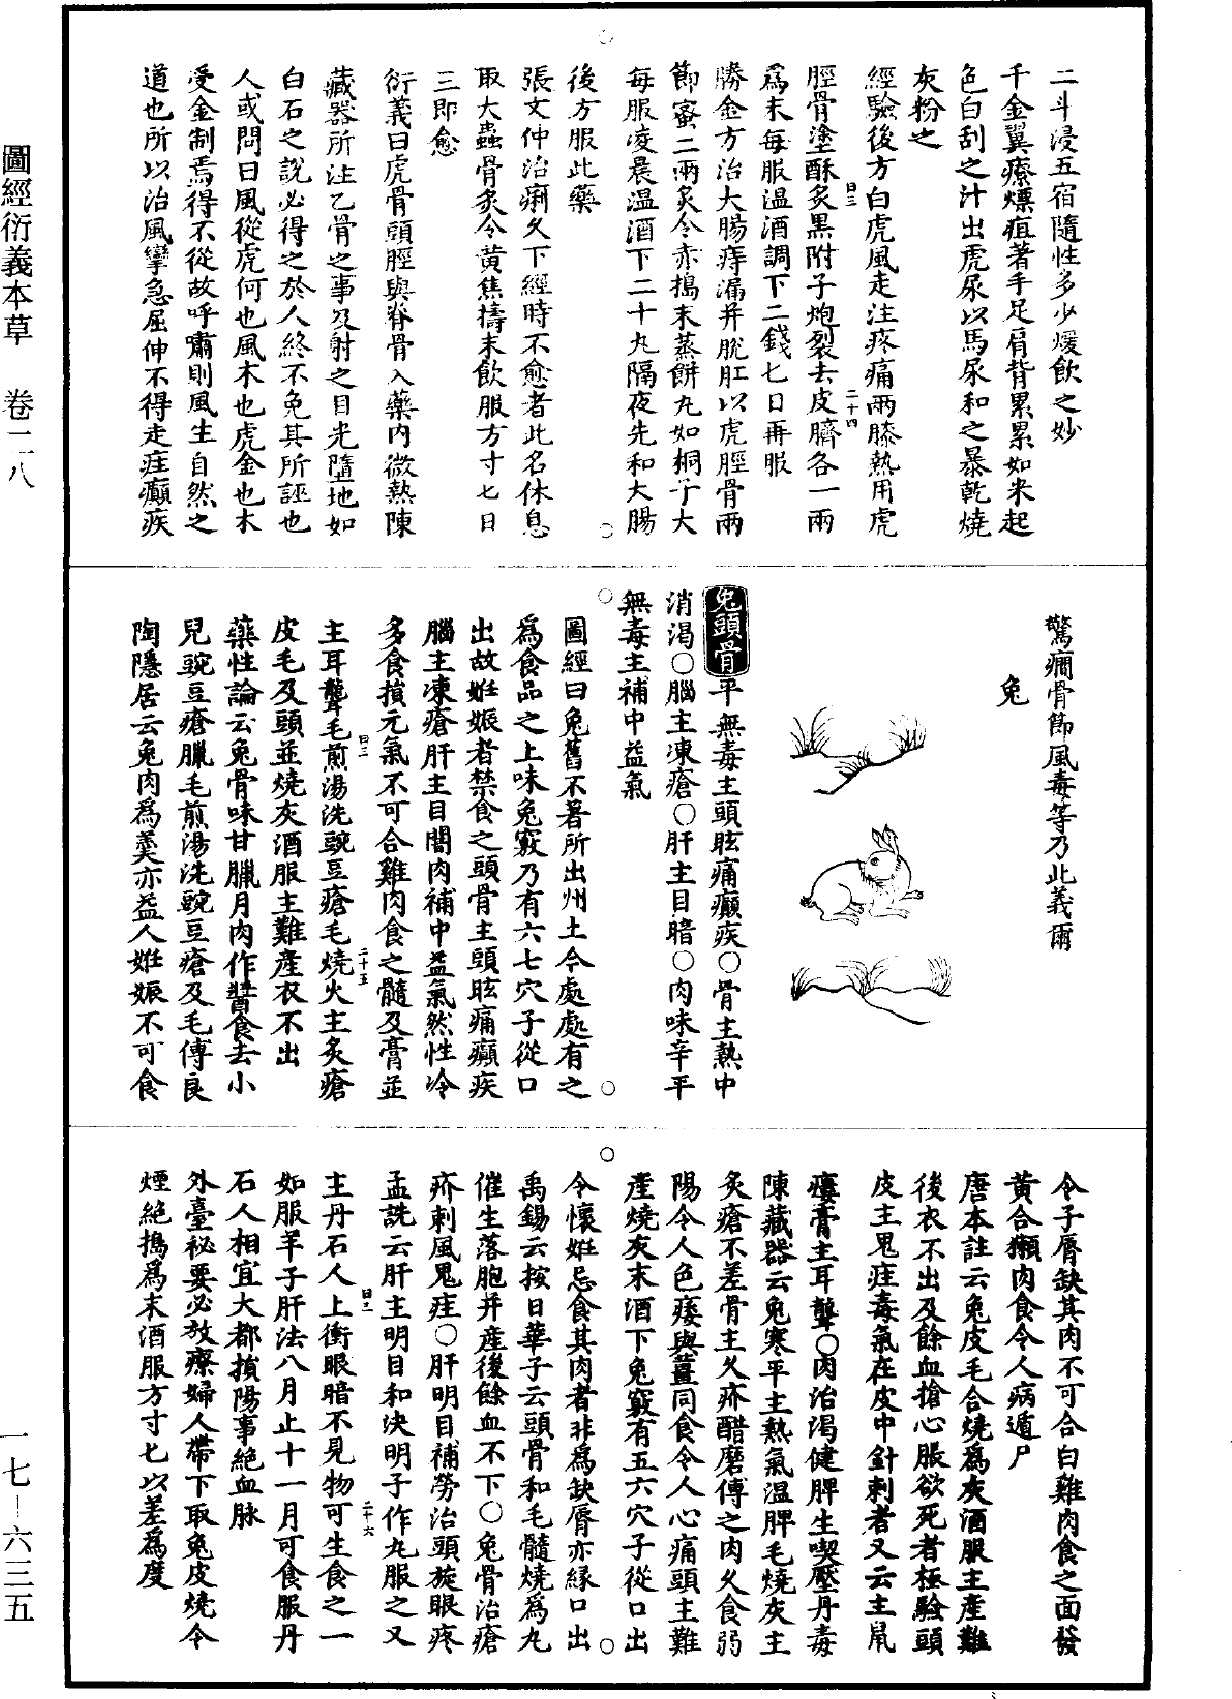 二斗浸五宿隨性多少煖飲之妙
千金翼療瘭疽著手足肩背累累如米起
色白刮之汁出虎尿以馬尿和之暴乾燒
灰粉之
經驗後方白虎風走注疼痛兩膝熱用虎
脛骨塗酥炙黑附子炮裂去皮臍各一兩
爲末每服温酒調下二錢匕日再服
勝金方治大腸痔漏并脫肛以虎脛骨兩
節蜜二兩炙令赤搗末蒸餅丸如桐子大
每服凌晨温酒下二十丸隔夜先和大腸
後方服此藥
張文仲治痢久下經時不愈者此名休息
取大蟲骨炙令黄焦擣末飲服方寸匕日
三即愈
衍義曰虎骨頭脛與脊骨入藥内微熱陳
藏器所注乙骨之事及射之目光墮地如
白石之說必得之於人終不免其所誣也
人或問曰風從虎何也風木也虎金也木
受金制焉得不從故呼嘯則風生自然之
道也所以治風攣急屈伸不得走疰癲疾
曰三
二十四
驚癎骨節風毒等乃此義爾
兔
兔頭骨平無毒主頭眩痛癲疾○骨主熱中
消渴○腦主凍瘡○肝主目暗○肉味辛平
無毒主補中益氣
圖經曰兔舊不著所出州土今處處有之
爲食品之上味兔竅乃有六七穴子從口
出故妊娠者禁食之頭骨主頭眩痛癲疾
腦主凍瘡肝主目闇肉補中益氣然性冷
多食損元氣不可合雞肉食之髓及膏並
主耳聾毛煎湯洗豌豆瘡毛燒火主炙瘡
皮毛及頭並燒灰酒服主難產衣不出
藥性論云兔骨味甘臘月肉作醬食去小
兒豌豆瘡臘毛煎湯洗豌豆瘡及毛傅良
陶隱居云兔肉爲羹亦益人妊娠不可食
曰三
二十五
令子脣缺其肉不可合白雞肉食之面發
黄合獺肉食令人病遁尸
唐本註云兔皮毛合燒爲灰酒服主產難
後衣不出及餘血搶心脹欲死者極驗頭
皮主鬼疰毒氣在皮中針刺者又云主鼠
瘻膏主耳聾○肉治渴健脾生喫壓丹毒
陳藏器云兔寒平主熱氣溫脾毛燒灰主
炙瘡不差骨主久疥醋磨傅之肉久食弱
陽令人色痿與薑同食令人心痛頭主難
產燒灰末酒下兔竅有五六穴子從口出
今懷妊忌食其肉者非爲缺脣亦緣口出
禹錫云按日華子云頭骨和毛髓燒爲丸
催生落胞并產後餘血不下○兔骨治瘡
疥刺風鬼疰○肝明目補勞治頭旋眼疼
孟詵云肝主明目和決明子作丸服之又
主丹石人上衝眼暗不見物可生食之一
如服羊子肝法八月止十一月可食服丹
石人相宜大都損陽事絕血脉
外臺秘要必放療婦人帶下取兔皮燒令
煙絕搗爲末酒服方寸匕以差爲度
曰三
二十六
圖經衍義本草 卷二八
一七—六三五